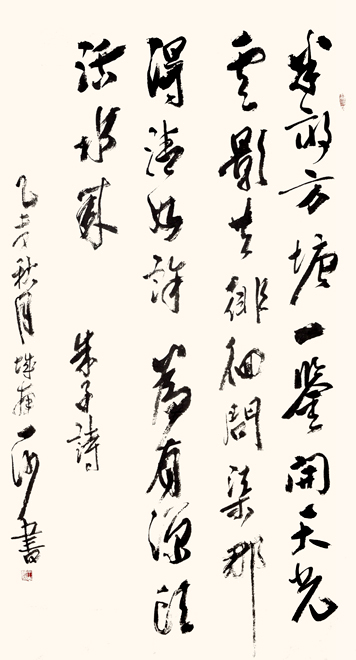 半畝方塘一鑒開天光
雲影共徘徊問渠那
得清如許為有源頭
活水來 朱子詩
乙秋月城南一書